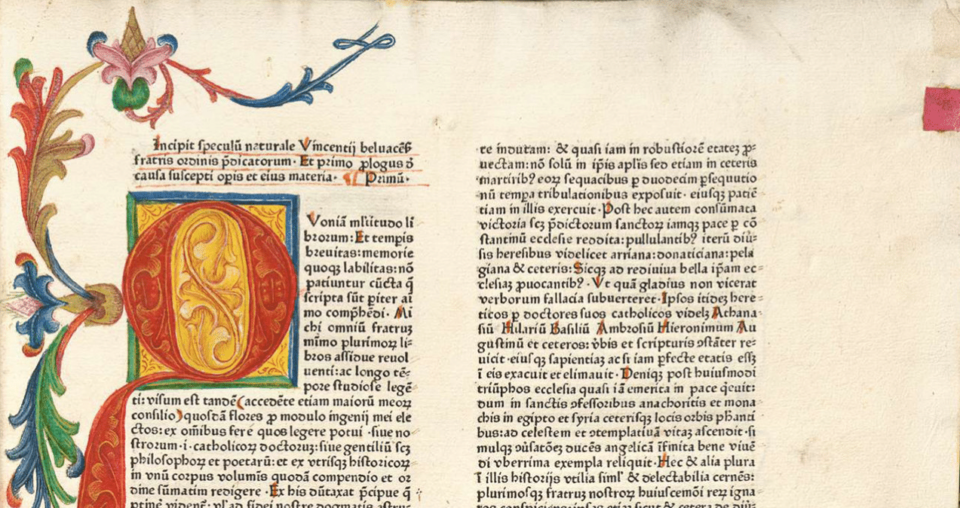 Incipit speculū naturale Vincentij beluaceß
fratris ordinis p̄dicatorum· Et primo ꝓlogus ð
causa suscepti oꝑis et eius materia· Primū·
Voniā ml̄titudo li
brorum: Et tempis
breuitas: memorie
quoqꝫ labilitas: nō
patiuntur cūcta q̄
scripta sūt ꝑiter ai
mo comp̄hēdi· Mi
chi omniū fratruꝫ
mīmo plurimoꝝ li
bros assidue reuol
uenti: ac longo tē⸗
pore studiose legē
ti: visum est tandē (accedēte etiam maioꝝ meoꝝ
consilio) quosdā flores ꝓ modulo ingenij mei ele
ctos: ex om̄ibus fere quos legere potui· siue no
strorum· i· catholicoꝝ doctoruꝫ: siue gentiliū scꝫ
philosophoꝝ et poetarū: et ex vtrisqꝫ historicoꝝ
in vnū corpus volumis quodā compendio et or
dine sūmatim redigere· Ex his dūtaxat p̄cipue q̄
ptinē vident̄: vl̓ ad fidei nostre dogmatis astru⸗
te indutam: & quasi iam in robustiorē etateꝫ ꝓ⸗
uectam: nō solū in ip̄is apl̄is sed etiam in ceteris
martiribꝫ eoꝝ sequacibus ꝑ duodecim ꝑsequutio
nū tempa tribulationibus exposuit· eiusqꝫ patiē
tiam in illis exercuit· Post hec autem consūmata
victoria scꝫ p̄dictorum sanctoꝝ iamqꝫ pace ꝑ cō
stantinū ecclesie reddita: pullulantibꝫ iterū diū⸗
sis heresibus videlicet arriana: donaticiana: pela
giana & ceteris: Sicqꝫ ad rediuiua bella ip̄am ec⸗
clesiaꝫ ꝓuocantibꝫ· Vt quā gladius non vicerat
verborum fallacia subuerteret· Ipsos itideꝫ here⸗
ticos ꝑ doctores suos catholicos videlꝫ Athana⸗
siū Hilariū Basiliū Ambrosiū Hieronimum Au
gustinū et ceteros: v̄bis et scripturis ꝯstāter re⸗
uicit· eiusqꝫ sapientiaꝫ ac si iam ꝑfecte etatis esſꝫ
ī eis exacuit et elimauit· Deniqꝫ post huiusmodi
triūphos ecclesia quasi iā emerita in pace q̄euit:
dum in sanctis ꝯfessoribus anachoritis et mona
chis in egipto et syria ceterisqꝫ locis orbis ꝓhanti
bus: ad celestem et ꝯtemplatiuā vitaꝫ ascendit· si
mulqꝫ ꝯuſatōeꝫ ducēs angelicā īfinita bene viuē
di vberrima exempla reliquit· Hec & alia plura
ī illis historijs vtilia siml̓ & delectabilia cernēs:
plurimosqꝫ fratruꝫ nostroꝝ huiuscemōi reꝝ igna